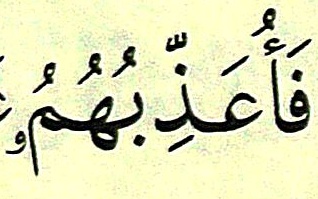 فَأُعَذِّبُهُمُۥ